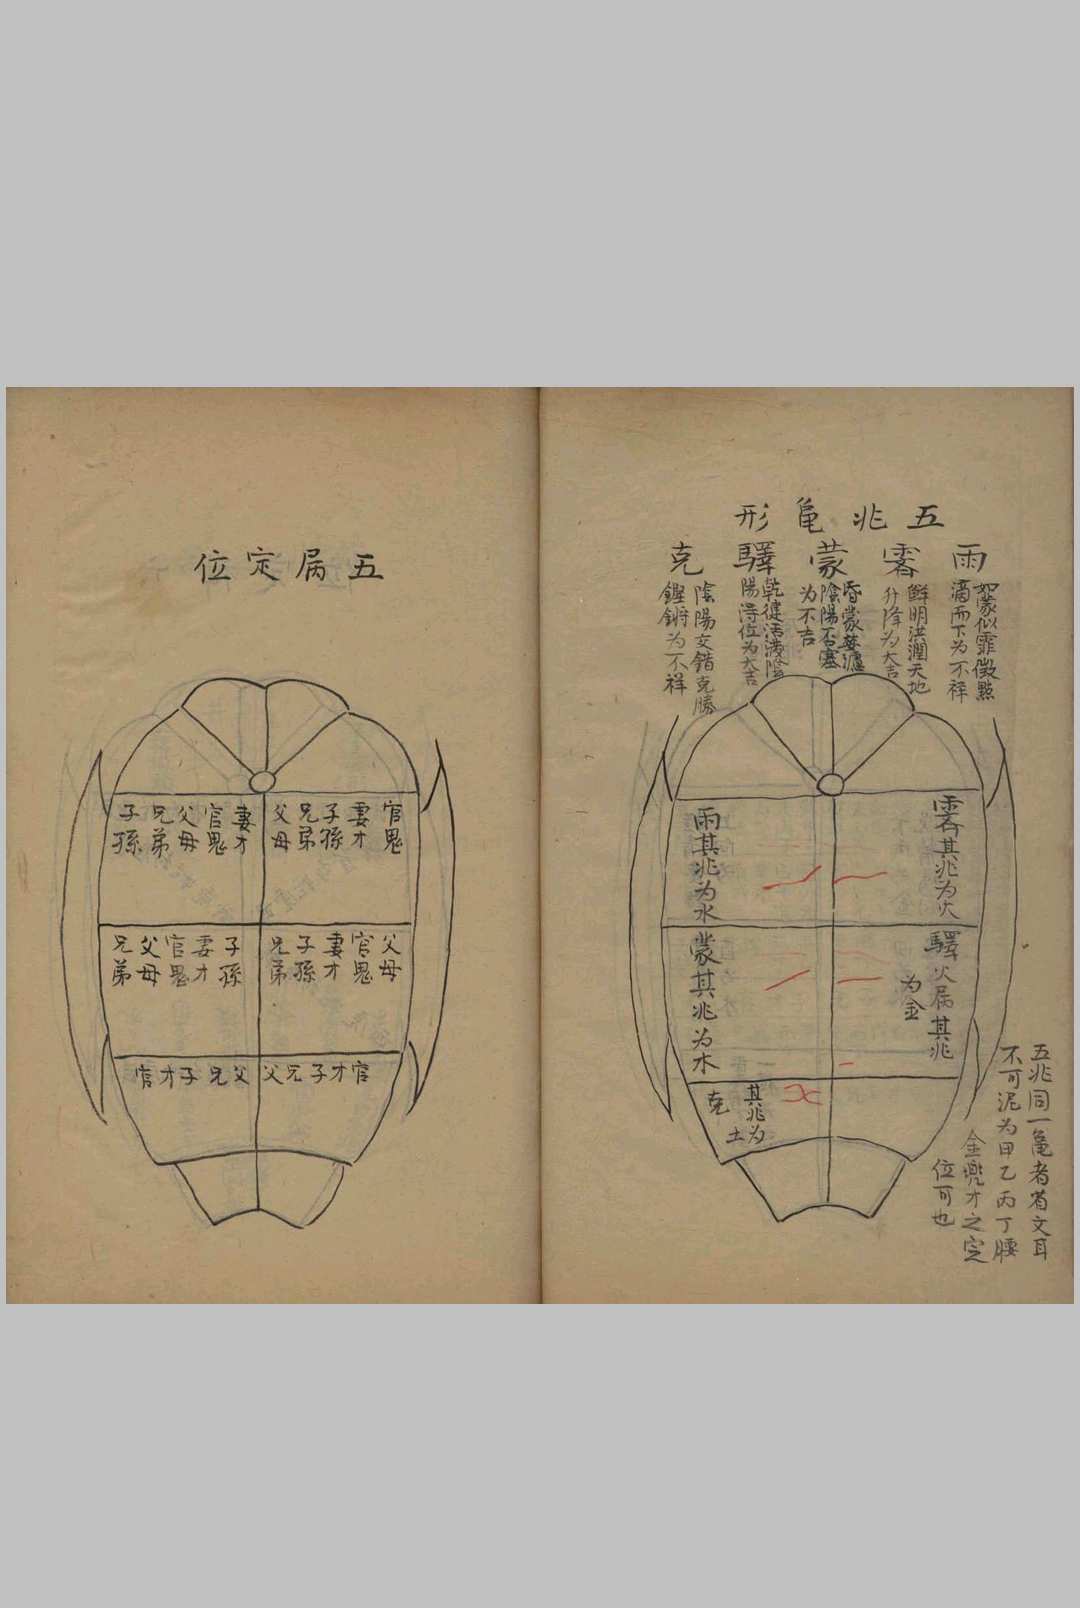 五兆龜形
雨
如蒙似霏微點
滴而下为不祥
霽
鮮明洪潤天地
升降为大吉
蒙
昏蒙
陰陽否塞
为不吉
驛
乾健活潑陰
陽得位为大吉
克
陰陽交錯克勝
鏗鏘为不祥
霽其兆为火
驛火属其兆
为金
雨其兆为水
蒙其兆为木
克
其兆为
土
五兆同一龜者省文耳
不可泥为甲乙丙丁腰
金兜才之定
位可也
五屬定位
官鬼
妻才
子孫
兄弟
父母
妻才
官鬼
父母
兄弟
子孫
父母
官鬼
妻才
子孫
兄弟
子孫
妻才
官鬼
父母
兄弟
官才子兄父
父兄子才官